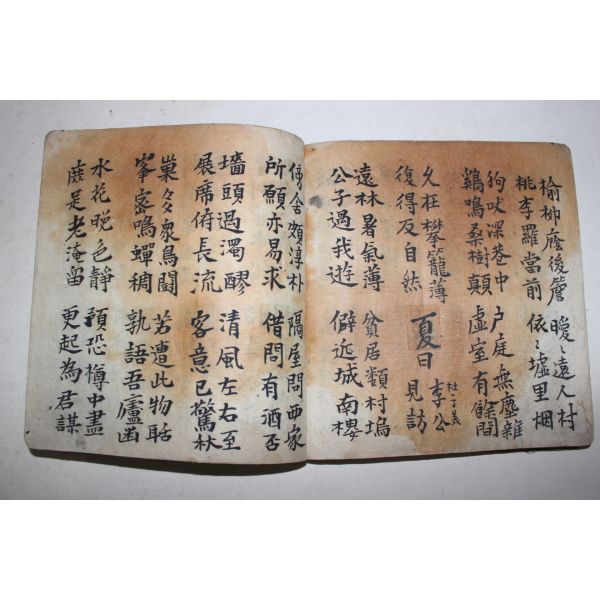 榆柳蔭後簷
桃李羅當前
曖〻遠人村
依〻墟里烟
狗吠深巷中
鷄鳴桑樹顛
户庭無塵雜
虛室有餘間
久枉攀籠薄
復得反自然
夏日
李公
見訪
杜子美
遠林暑氣薄
公子過我遊
貧居類村塢
僻近城南樓
傍舍頗淳朴
所願亦易求
隔屋問西家
借問有酒否
墻頭過濁醪
展席俯長流
清風左右至
客意已驚秋
巢多衆鳥鬪
峯密鳴蟬稠
苦遭此物聒
孰語吾廬幽
水花晩色靜
庶是老淹留
預恐樽中盡
更起為君謀